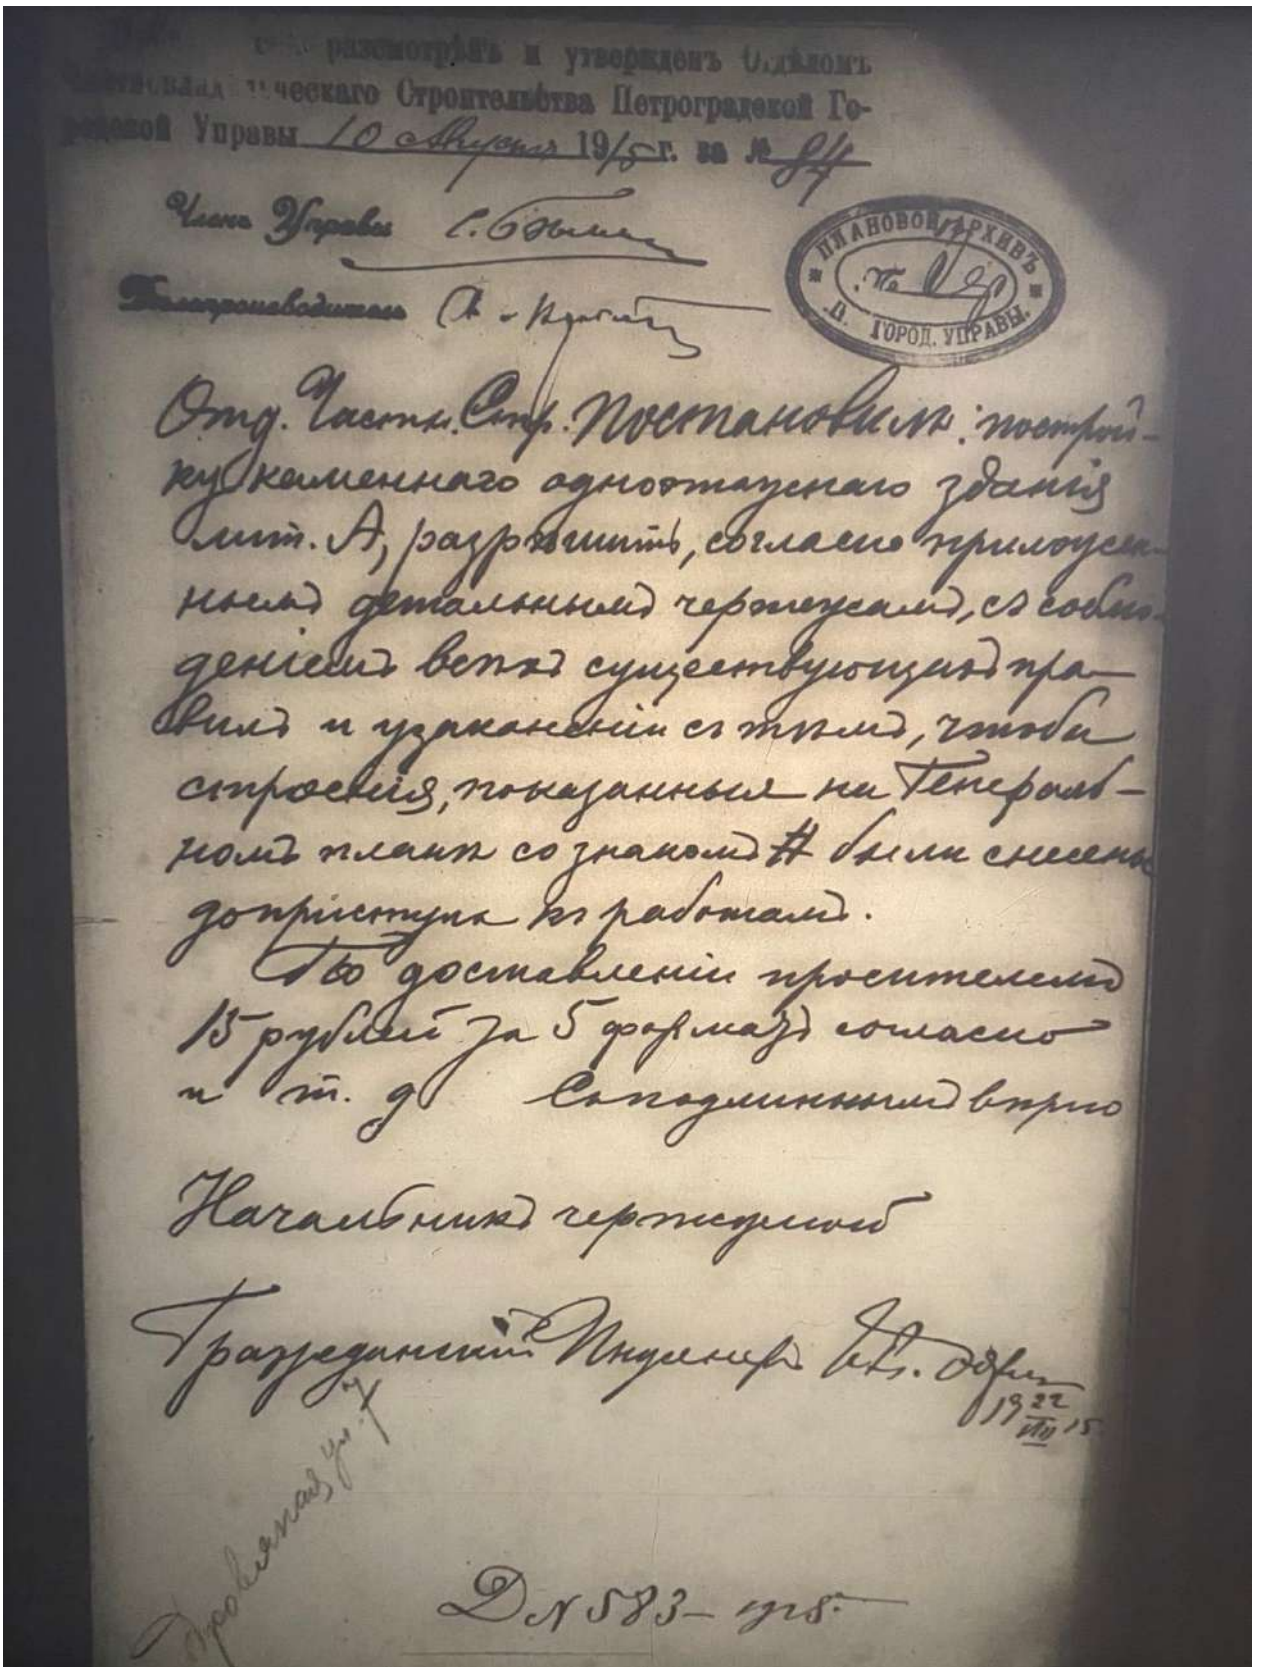 разсмотрѣнъ и утвержденъ Отдѣломъ
ческаго Строительства Петроградской Го-
родской Управы 10 Августа 1915 г. за № 84
Членъ Управы
Дѣлопроизводитель
ПЛАНОВОЙ АРХИВЪ
№
П. ГОРОД. УПРАВЫ.
Отд. Частн. Стр. Постановилъ: построй-
ку каменнаго одноэтажнаго зданія
лит. А, разрѣшить, согласно приложен-
нымъ детальнымъ чертежамъ, съ соблю-
деніемъ всѣхъ существующихъ пра-
вилъ и узаконеній съ тѣмъ, чтобы
строенія, показанныя на Генераль-
номъ планѣ со знакомъ # были снесены
до приступа къ работамъ.
По доставленіи просителемъ
15 рублей за 5 форматъ согласно
и т. д Съ подлиннымъ вѣрно
Начальникъ чертежной
Гражданскій Инженеръ
19 22/VIII 15
Дровяная ул. 7
Д № 583 – 1915.